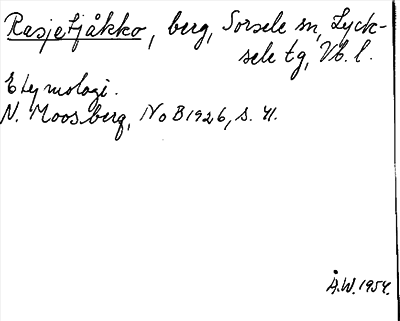 Rasjetjåkko, berg, Sorsele sn, Lyck-
sele tg, Vb. l.
Etymologi.
N. Moosberg, NoB 1926, s. 41.
Å.W. 1954.